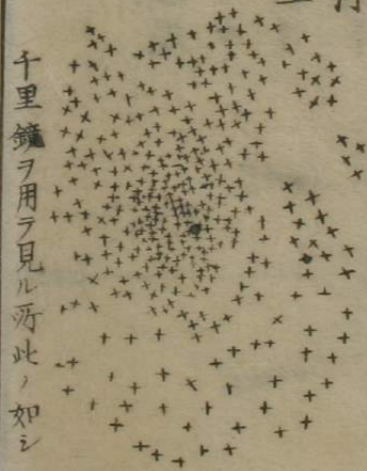 千里鏡ヲ用ラ見ル所此ノ如シ